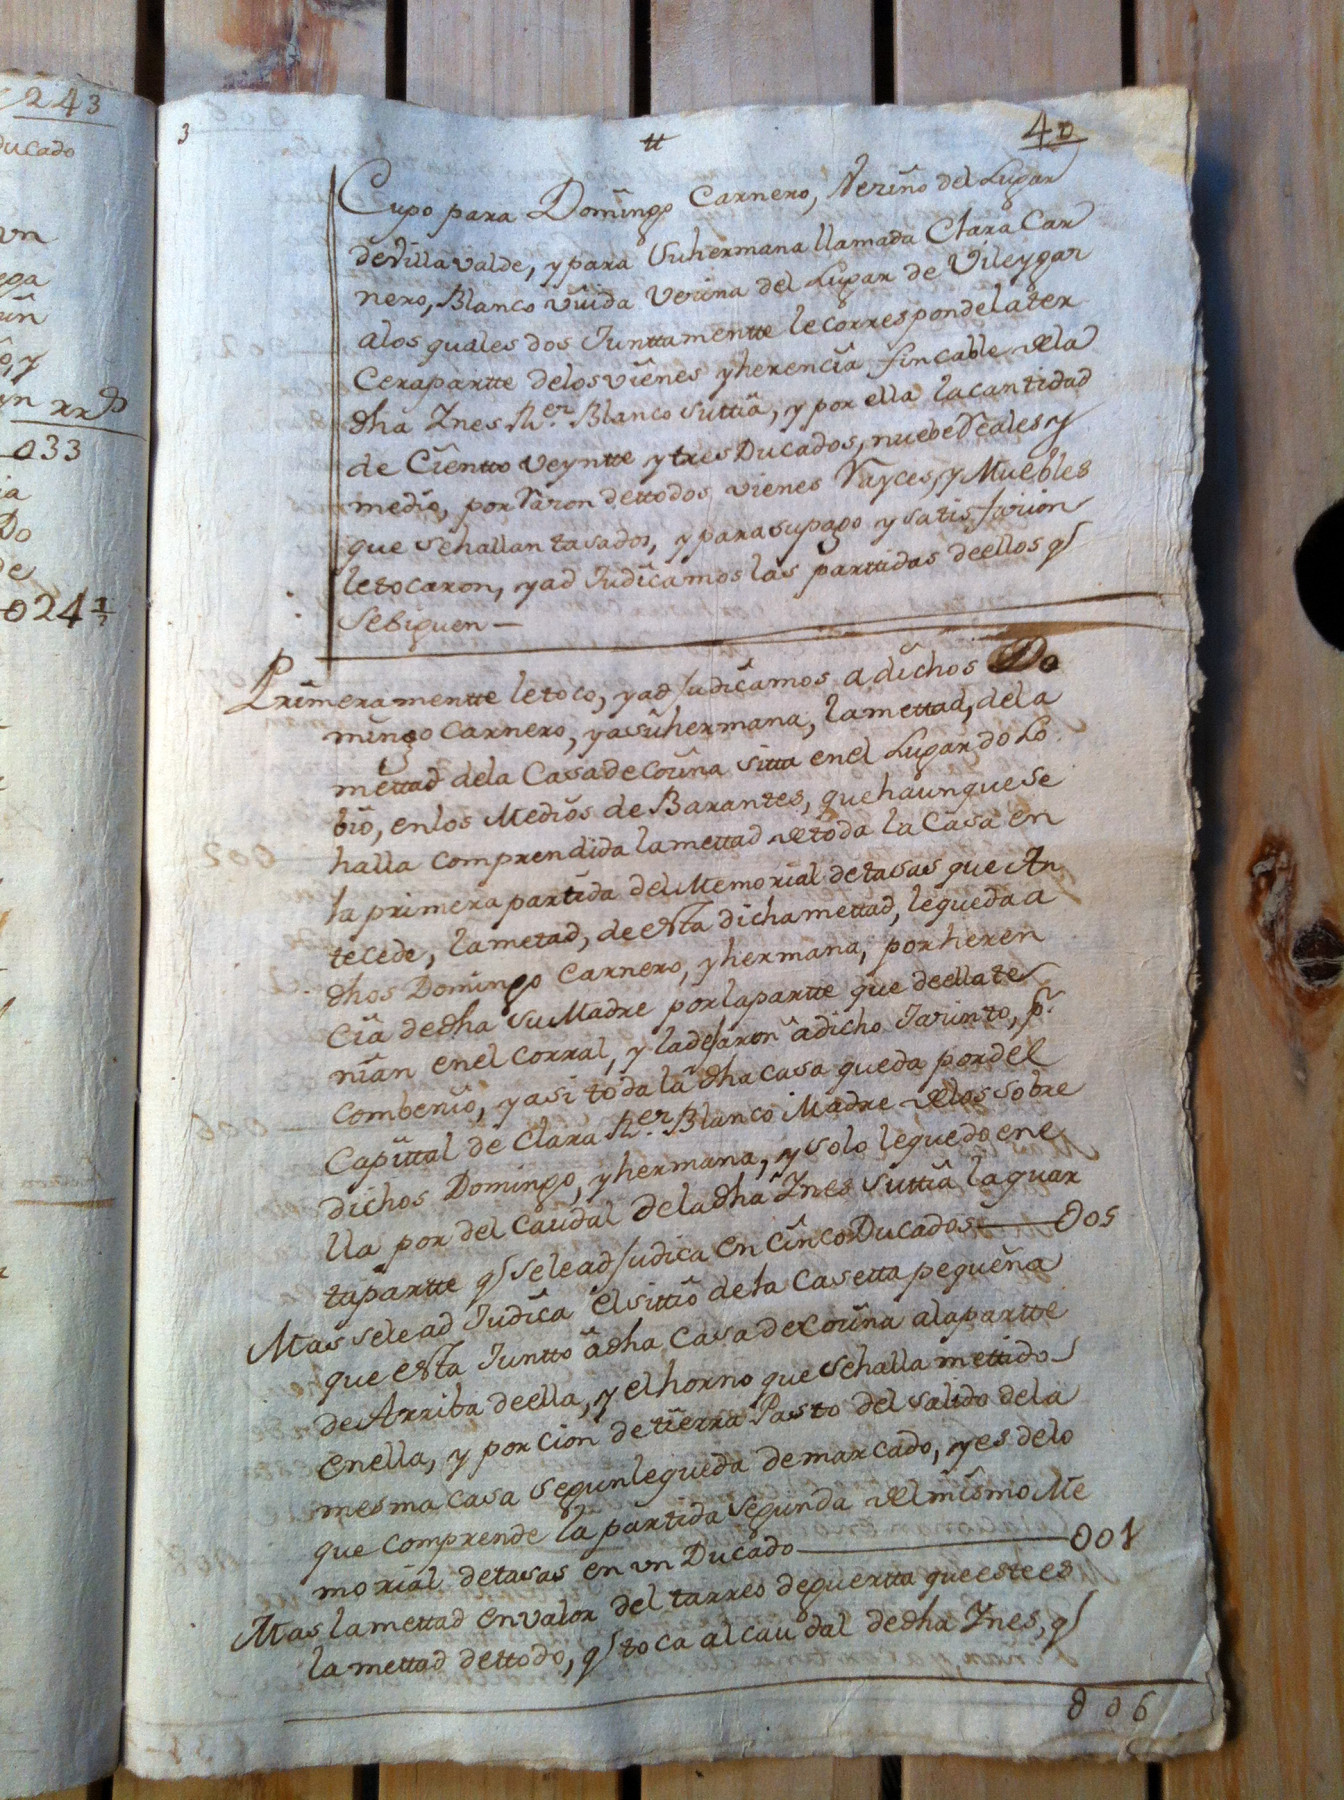 243
ducado
vn
033
Do
de
024
3 tt 40
Cupo para Domingo Carnero, Vezino del Lugar
de Villavalde, y para Su hermana llamada Clara Car
nero, Blanco viuda Vecina del Lugar de Vileygar
a los quales dos Junttamentte le corresponde la ter
Cera partte de los vienes y herencia fincable de la
dha Ynes Rer Blanco su ttia, y por ella la cantidad
de Cientto veyntte y tres Ducados, nuebe Reales y
medio, por Raron de ttodos vienes Rayces, y Muebles
que se hallan tasados, y para su pago y satisfacion
le tocaron, y ad Judicamos las parttidas de ellos q
Se siguen —
Primeramentte le toco, y adjudicamos a dichos Do
mingo Carnero, y a su hermana, la mettad, de la
mettad de la Casa de Cocina sitta en el Lugar do Lo
bio, en los Medios de Barantes, que haunque se
halla comprendida la mettad de toda la Casa en
la primera partida del Memorial de tasas que An
tecede, la metad, de esta dicha mettad, le queda a
dhos Domingo Carnero, y hermana, por heren
cia de dha su Madre por la partte que de ella te
nian en el corral, y la dejaron a dicho Jacinto, pr
combenio, y asi toda la dha casa queda por del
Capittal de Clara Rer Blanco Madre de los sobre
dichos Domingo, y hermana, y solo le quedo en e
lla por del Caudal de la dha Ynes su ttia la quar
ta partte q se le adjudica en Cinco Ducados — 005
Mas se le ad Judica el sittio de la Casetta pequeña
que esta Juntto a dha Casa de Cocina a la partte
de Arriba de ella, y el horno que se halla mettido
en ella, y porcion de tierra Pasto del salido de la
mesma casa segun le queda demarcado, y es de lo
que comprende la partida segunda del mismo Me
morial de tasas en vn Ducado — 001
Mas la mettad en valor del tarreo de guertta que este es
la mettad de ttodo, q toca al caudal de dha Ynes, q
006